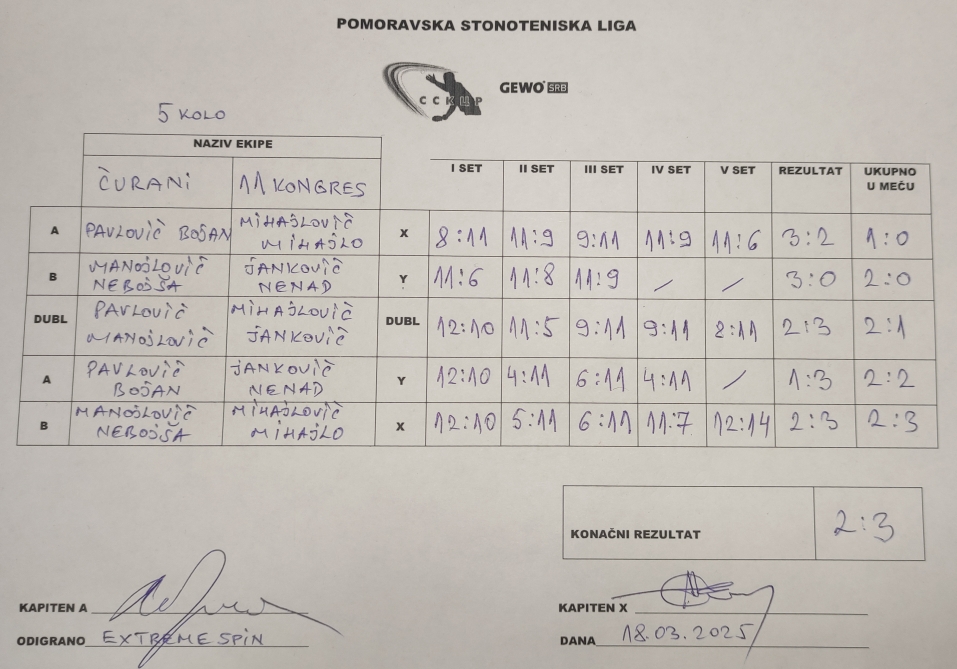 POMORAVSKA STONOTENISKA LIGA
ССКЦР
GEWO SRB
5 KOLO
NAZIV EKIPE
ČURANI 11 KONGRES I SET II SET III SET IV SET V SET REZULTAT UKUPNO U MEČU
A PAVLOVIČ BOJAN MIHAJLOVIČ MIHAJLO X 8:11 11:9 9:11 11:9 11:6 3:2 1:0
B MANOJLOVIČ NEBOJŠA JANKOVIČ NENAD Y 11:6 11:8 11:9 / / 3:0 2:0
DUBL PAVLOVIČ MANOJLOVIČ MIHAJLOVIČ JANKOVIČ DUBL 12:10 11:5 9:11 9:11 8:11 2:3 2:1
A PAVLOVIČ BOJAN JANKOVIČ NENAD Y 12:10 4:11 6:11 4:11 / 1:3 2:2
B MANOJLOVIČ NEBOJŠA MIHAJLOVIČ MIHAJLO X 12:10 5:11 6:11 11:7 12:14 2:3 2:3
KONAČNI REZULTAT 2:3
KAPITEN A KAPITEN X
ODIGRANO EXTREME SPIN DANA 18.03.2025